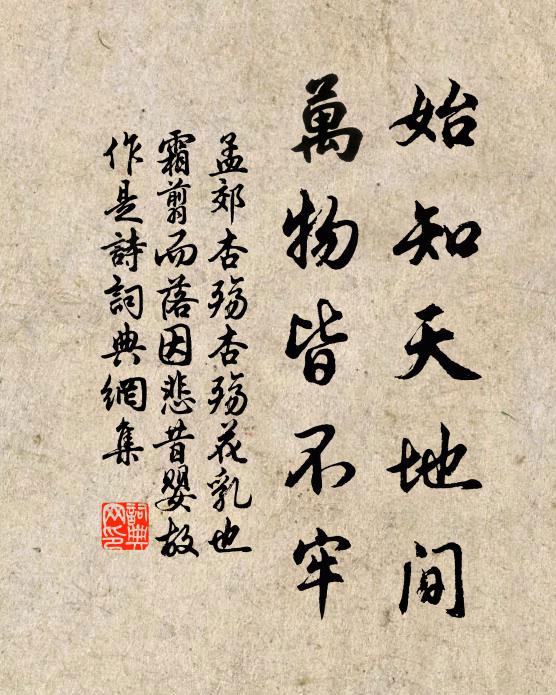 始知天地间
萬物皆不牢
孟郊杏殤杏殤花乳也
霜剪而落因悲昔嬰故
作是詩詞典網集
詞典
网印